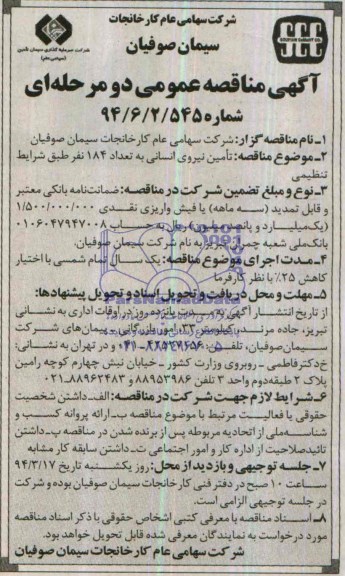 شرکت سهامی عام کارخانجات
سیمان صوفیان
شرکت سرمایه گذاری سیمان تأمین
(سهامی عام)
آگهی مناقصه عمومی دو مرحله‌ای
شماره ۹۴/۶/۲/۵۴۵
۱ـ نام مناقصه گزار: شرکت سهامی عام کارخانجات سیمان صوفیان
۲ـ موضوع مناقصه: تأمین نیروی انسانی به تعداد ۱۸۴ نفر طبق شرایط
تنظیمی
۳ـ نوع و مبلغ تضمین شرکت در مناقصه: ضمانت‌نامه بانکی معتبر
و قابل تمدید (سه ماهه) یا فیش واریزی نقدی ۱/۵۰۰/۰۰۰/۰۰۰
(یک‌میلیارد و پانصد میلیون) ریال به حساب ۰۱۰۶۰۴۷۹۴۷۰۰۸
بانک‌ملی شعبه چمران تبریز به نام شرکت سیمان صوفیان.
۴ـ مدت اجرای موضوع مناقصه: یک سال تمام شمسی با اختیار
کاهش ۲۵٪ با نظر کارفرما
۵ـ مهلت و محل دریافت و تحویل اسناد و تحویل پیشنهادها:
از تاریخ انتشار آگهی به مدت پانزده روز در اوقات اداری به نشانی
تبریز، جاده مرند، کیلومتر ۳۳، امور بازرگانی و پیمان‌های شرکت
سیمان‌صوفیان، تلفن: ۰۴۱ و در تهران به نشانی:
خ‌دکترفاطمی ـ روبروی وزارت کشور ـ خیابان نبش چهارم کوچه رامین
پلاک ۲ طبقه‌دوم واحد ۳ تلفن ۸۸۹۵۳۹۸۶ و ۸۸۹۶۳۴۸۳ـ۰۲۱
۶ـ شرایط لازم جهت شرکت در مناقصه: الف‌ـ داشتن شخصیت
حقوقی با فعالیت مرتبط با موضوع مناقصه ب‌ـ ارائه پروانه کسب و
شناسه‌ملی از اتحادیه مربوطه پس از برنده شدن در مناقصه پ‌ـ داشتن
تائیدصلاحیت از اداره کار و امور اجتماعی ت‌ـ داشتن سابقه کار مشابه
۷ـ جلسه توجیهی و بازدید از محل: روز یکشنبه تاریخ ۹۴/۳/۱۷
ساعت ۱۰ صبح در دفتر فنی کارخانجات سیمان صوفیان بوده و شرکت
در جلسه توجیهی الزامی است.
۸ـ اسناد مناقصه با معرفی کتبی اشخاص حقوقی با ذکر اسناد مناقصه
مورد درخواست به نمایندگان معرفی شده قابل تحویل خواهد بود.
شرکت سهامی عام کارخانجات سیمان صوفیان